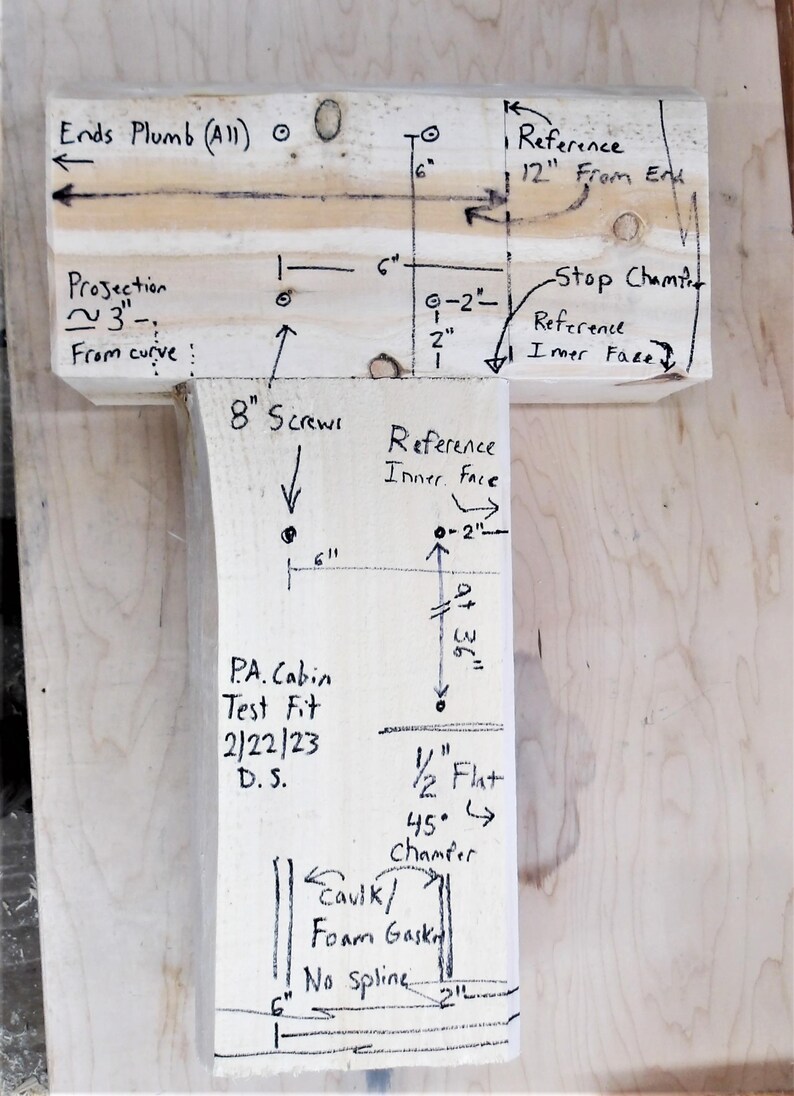 Ends Plumb (All)
6"
Reference
12" From End
6"
Stop Chamfer
Projection
≈ 3"
From curve
2"
2"
Reference
Inner Face
8" Screws
Reference
Inner Face
2"
6"
At 36"
P.A. Cabin
Test Fit
2/22/23
D.S.
1/2" Flat
45°
Chamfer
Caulk/
Foam Gasket
No spline
6"
2"